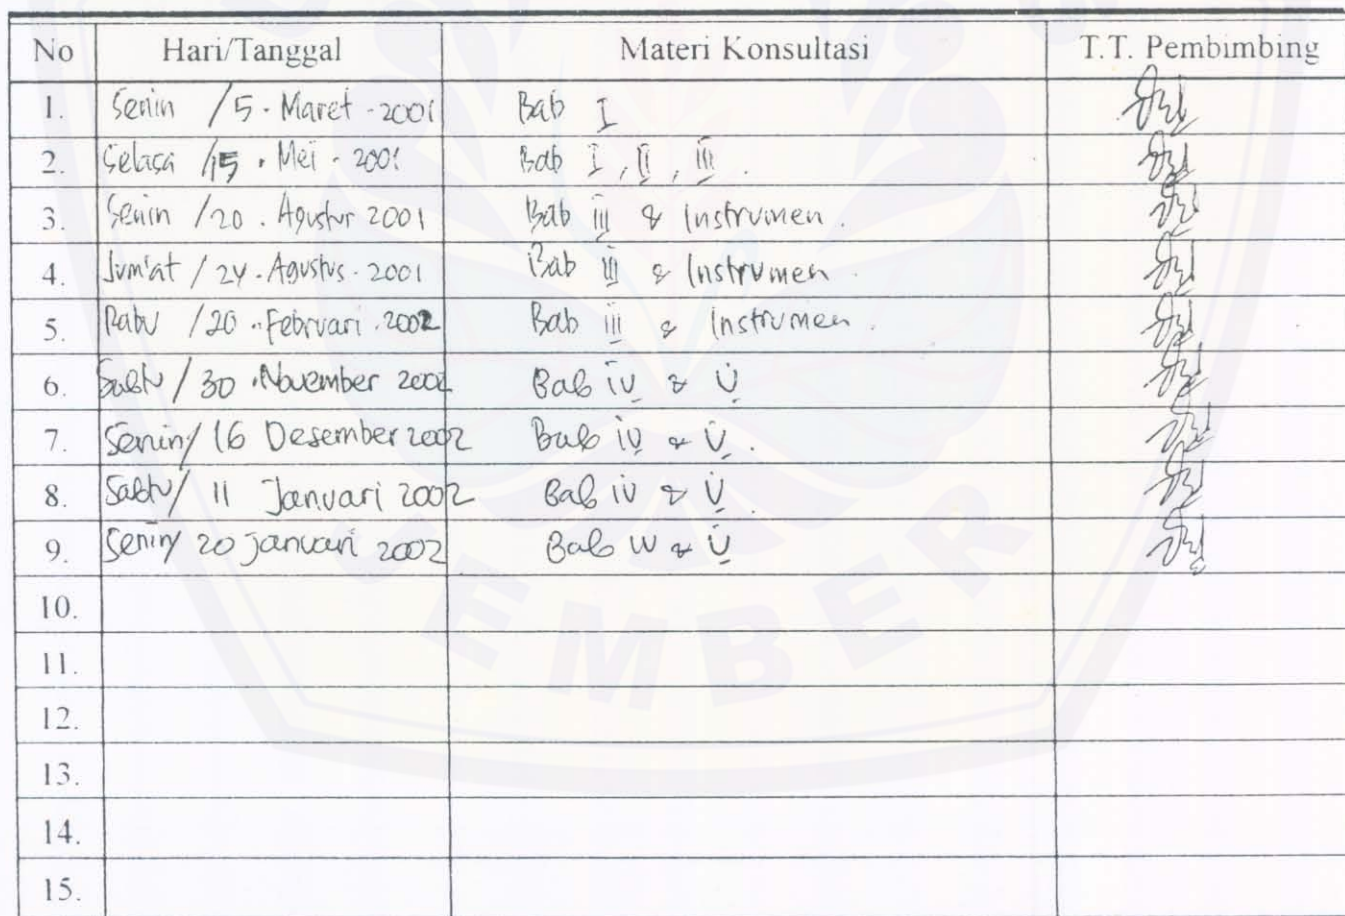 No Hari/Tanggal Materi Konsultasi T.T. Pembimbing
1. Senin / 5 - Maret - 2001 Bab I
2. Selasa / 15 - Mei - 2001 Bab I, II, III.
3. Senin / 20 . Agustus 2001 Bab III & Instrumen.
4. Jum'at / 24 - Agustus - 2001 Bab III & Instrumen
5. Rabu / 20 - Februari . 2002 Bab III & Instrumen.
6. Sabtu / 30 . November 2002 Bab IV & V
7. Senin / 16 Desember 2002 Bab IV & V.
8. Sabtu / 11 Januari 2002 Bab IV & V
9. Senin / 20 Januari 2002 Bab IV & V
10.
11.
12.
13.
14.
15.
JEMBER